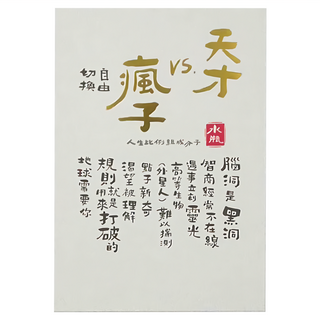 天才
vs.
瘋子
自由
切換
人生記術組成分子
水瓶
腦洞是黑洞
智商經常不在線
遇事立刻靈光
高等生物
(外星人)難以揣測
點子新奇
渴望被理解
規則就是
用來打破的
地球需要你